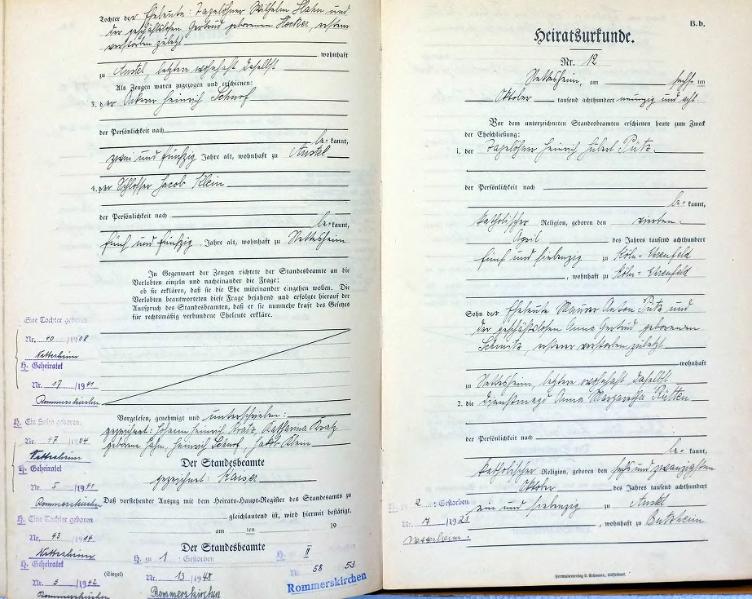 Tochter der Eheleute: Tagelöhner Wilhelm Hahn und
der geschäftslosen Gertrud geborenen Hecker, ersterer
verstorben zuletzt
wohnhaft
zu Anstel, letztere wohnhaft daselbst
Als Zeugen waren zugezogen und erschienen:
3. der Ackerer Heinrich Schnorf
der Persönlichkeit nach
be- kannt,
zwei und fünfzig Jahre alt, wohnhaft zu Anstel
4. der Schlosser Jacob Klein
der Persönlichkeit nach
be- kannt,
fünf und fünfzig Jahre alt, wohnhaft zu Nettesheim
In Gegenwart der Zeugen richtete der Standesbeamte an die
Verlobten einzeln und nacheinander die Frage:
ob sie erklären, daß sie die Ehe miteinander eingehen wollen. Die
Verlobten beantworteten diese Frage bejahend und erfolgte hierauf der
Ausspruch des Standesbeamten, daß er sie nunmehr kraft des Gesetzes
für rechtmäßig verbundene Eheleute erkläre.
Eine Tochter geboren
Nr. 10 /1908
Nettesheim
H. Geheiratet
Nr. 17 /19
Rommerskirchen
Vorgelesen, genehmigt und unterschrieben:
gezeichnet: Johann Heinrich Katharina
geborene Hahn, Heinrich Schnorf, Jakob Klein
Ein Sohn geboren
Nr. 48 /1904
Nettesheim
H. Geheiratet
Nr. 5 /19
Rommerskirchen
Der Standesbeamte
gezeichnet
Daß vorstehender Auszug mit dem Heirats-Haupt-Register des Standesamts zu
gleichlautend ist, wird hiermit bestätigt.
am ten 19
Eine Tochter geboren
Nr. 43 /19
Nettesheim
H. Geheiratet
Nr. 3 /19
Rommerskirchen
Der Standesbeamte
(Siegel)
H. zu 1 : Gestorben
Nr. 13 /1948
Rommerskirchen
H. II
Nr. 58 53
Rommerskirchen
B.b.
Heiratsurkunde.
Nr. 12
Nettesheim, am sechsten
Oktober tausend achthundert neunzig und acht
Vor dem unterzeichneten Standesbeamten erschienen heute zum Zweck
der Eheschließung:
1. der Tagelöhner Heinrich Hubert Pütz
der Persönlichkeit nach
be- kannt,
katholischer Religion, geboren den vierten
April des Jahres tausend achthundert
fünf und siebenzig zu Köln-Ehrenfeld
, wohnhaft zu Köln-Ehrenfeld
Sohn der Eheleute Maurer Anton Pütz und
der geschäftslosen Anna Gertrud geborenen
Schmitz, ersterer verstorben zuletzt
wohnhaft
zu Nettesheim, letztere wohnhaft daselbst
2. die Dienstmagd Anna Margaretha Rütten
der Persönlichkeit nach
be- kannt,
katholischer Religion, geboren den sechs und zwanzigsten
Oktober des Jahres tausend achthundert
ein und siebenzig zu Anstel
, wohnhaft zu Butzheim
H. zu 2 : Gestorben
Nr. 7 /19